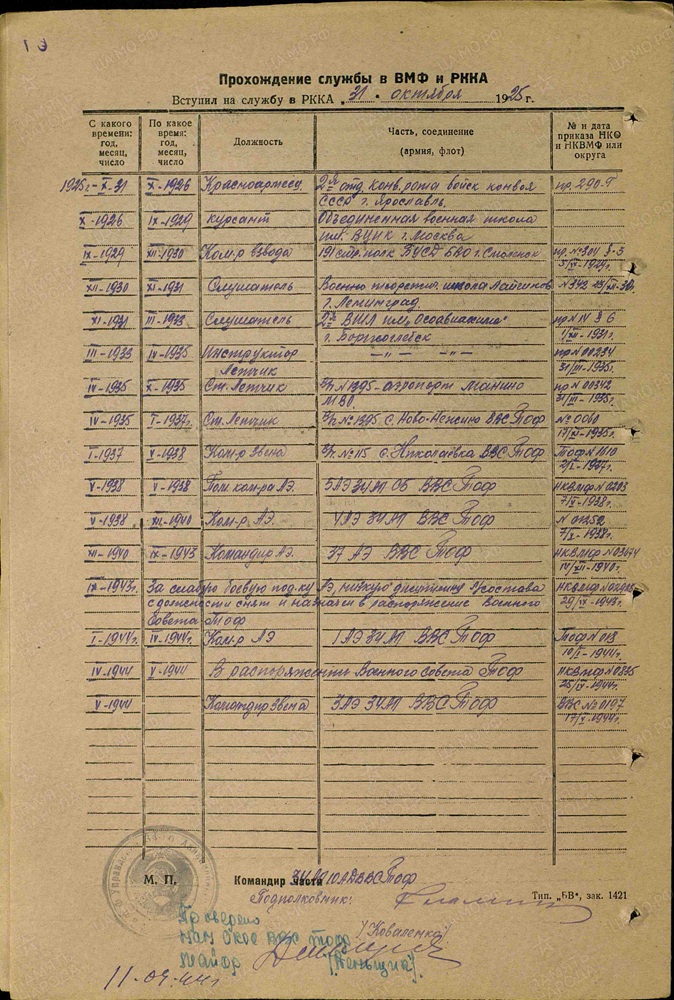 Прохождение службы в ВМФ и РККА
Вступил на службу в РККА „31“ октября 1925 г.
С какого времени: год, месяц, число
По какое время: год, месяц, число
Должность
Часть, соединение (армия, флот)
№ и дата приказа НКО и НКВМФ или округа
1925г.-X-31 X-1926 Красноармеец 2я отд. конв. рота войск конвоя
СССР г. Ярославль. пр. 290-
X-1926 IX-1929 курсант Объединенная военная школа
им. ВЦИК г. Москва
IX-1929 XII-1930 Ком-р взвода 191 стр. полк БВО г. Смоленск пр. №304 §-3
XII-1930 XI-1931 Слушатель Военно теоретич. школа Летчиков №342
г. Ленинград
XI-1931 III-1933 Слушатель 2я ВШЛ им. „Осоавиахима“ пр №IV § 6
г. Борисоглебск 1931г.
III-1933 IV-1935 Инструктор Летчик —„— —„— пр №00234
31/III-1935г.
IV-1935 X-1935 Ст. Летчик №1395 аэропорт Манино
МВО пр №00342
31/III-1935г.
IV-1935 I-1937г. Ст. Летчик №1395 с. Ново-Нежино ВВС Тоф №0060
17/XI-1935г.
I-1937 V-1938 Ком-р Звена №115 с. Николаевка ВВС Тоф Тоф №1010
2/I-1937г.
V-1938 V-1938 Пом. ком-ра АЭ. 5АЭ ОБ ВВС Тоф НКВМФ №0203
7/V-1938г.
V-1938 XII-1940 Ком-р АЭ. ВВС Тоф
7/X-1938г.
XII-1940 IX-1943 Командир АЭ. 37 АЭ ВВС Тоф НКВМФ №03674
IV/XII-1940г.
IX-1943г. За слабую боевую под-ку АЭ, низкую дисциплину л/состава НКВМФ
с должности снят и назначен в распоряжение Военного 29/IX-1943г.
Совета Тоф
I-1944г. IV-1944г. Ком-р АЭ 1АЭ ВВС Тоф Тоф №018
10/I-1944г.
IV-1944 V-1944 В распоряжении Военного Совета Тоф НКВМФ
25/IV-1944г.
V-1944 Командир Звена 3АЭ ВВС Тоф ВВС №0197
17/V-1944г.
М. П.
Командир части 10АД ВВС Тоф
Подполковник:
/Коваленко/
Тип. „БВ“, зак. 1421
Проверено
Майор
11.09.44г.